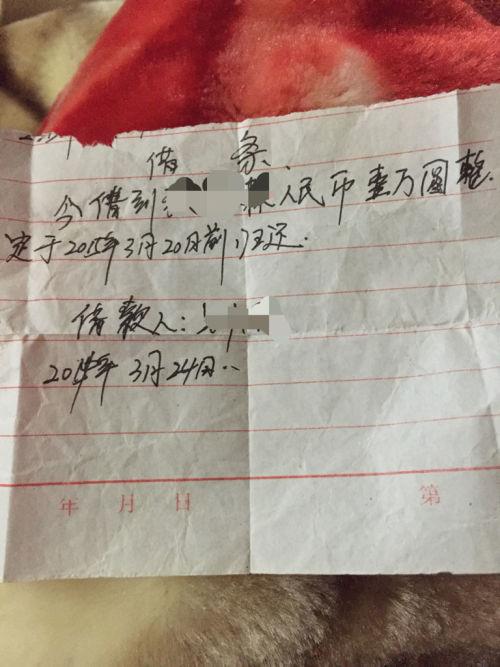 借 条
今借到 人民币壹万圆整.
定于2015年3月20日前归还.
借款人:
2014年3月24日..
年 月 日 第